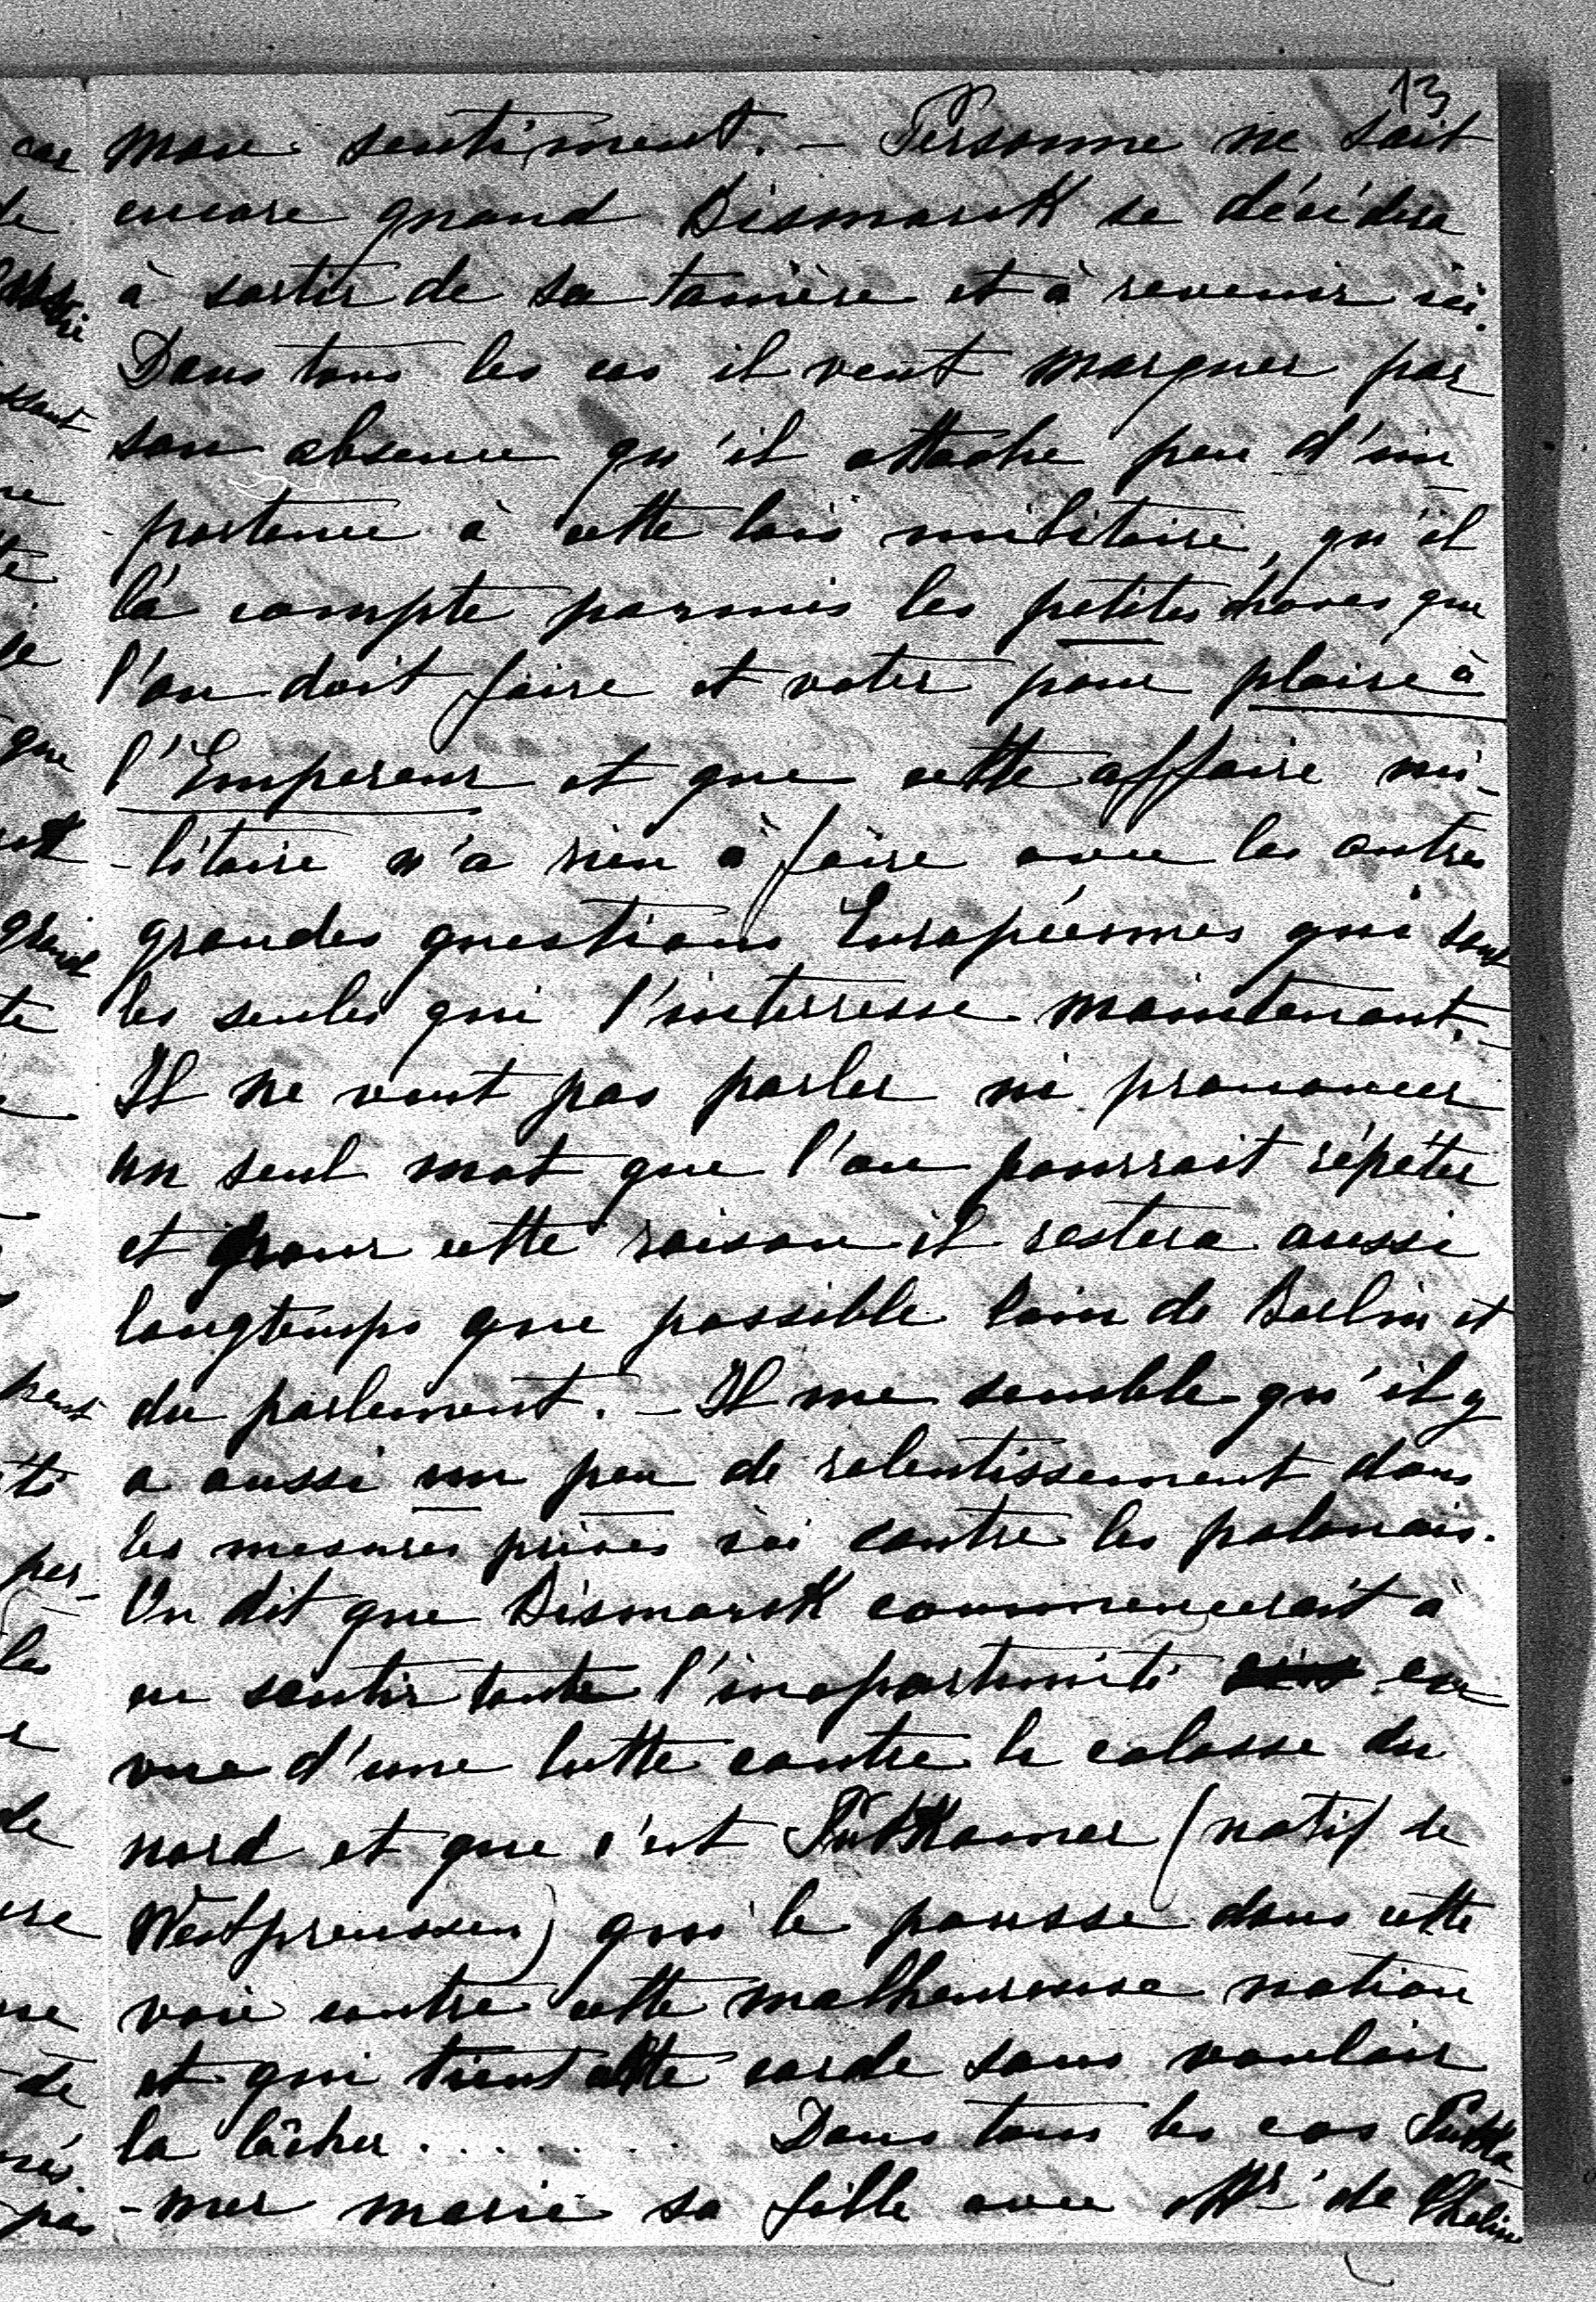 13
mon sentiment. - Personne ne sait
encore quand Bismarck se décidera
à sortir de sa tanière et à revenir ici.
Dans tous les cas il veut marquer par
son absence qu'il attache peu d'im
portance à cette lois militaire, qu'il
la compte parmis les petites choses que
l'on doit faire et voter pour plaire à
l'Empereur et que cette affaire mi-
-litaire n'a rien à faire avec les autres
grandes questions Européennes qui sont
les seules qui l'interresse maintenant. -
Il ne veut pas parler ni prononcer
un seul mot que l'on pourrait répéter
et pour cette raison il restera aussi
longtemps que possible loin de Berlin et
du parlement. - Il me semble qu'il y
a aussi un peu de ralentissement dans
les mesures prises ici contre les polonais.
On dit que Bismarck commencerait à
en sentir toute l'inoportunité en
vue d'une lutte contre le colosse du
nord et que c'est Püttkamer (natif de
Westpreussen) qui le pousse dans cette
voie contre cette malheureuse nation
et qui tient cette corde sans vouloir
la lâcher. . . . . . . Dans tous les cas Puttka
-mer marie sa fille avec Mr de